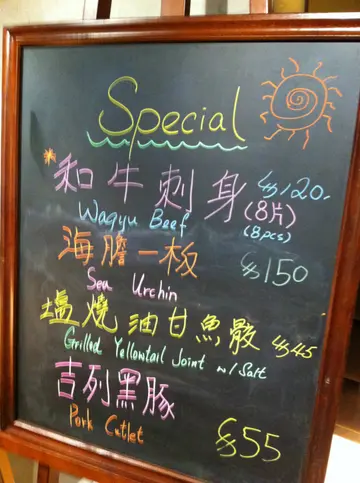 Special
和牛刺身 $120.
(8片)
Wagyu Beef (8pcs)
海膽一板 $150
Sea Urchin
塩燒油甘魚骹 $45
Grilled Yellowtail Joint w/ Salt
吉列黑豚
Pork Cutlet $55